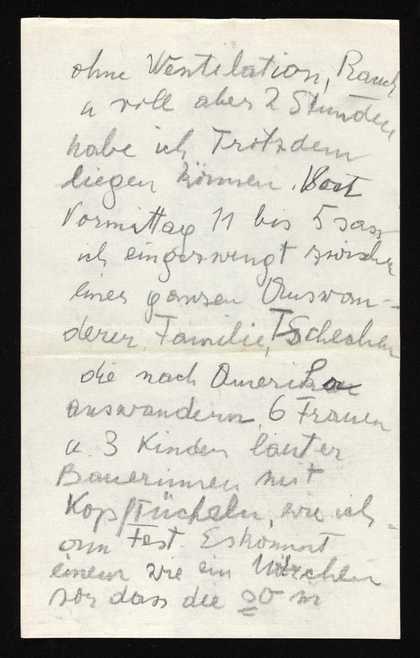 ohne Wentilation, Rauch
u voll aber 2 Stunden
habe ich Trotzdem
liegen können.
Vormittag 11 bis 5 sass
ich eingezwengt zwischen
einer ganzen Auswan-
derer Familie, Tschechen
die nach Amerika
auswandern, 6 Frauen
u 3 Kinder lauter
Bauerinnen mit
Kopftücheln, wie ich
Fest. Es kommt
einem wie ein Märchen
vor dass die 20 in